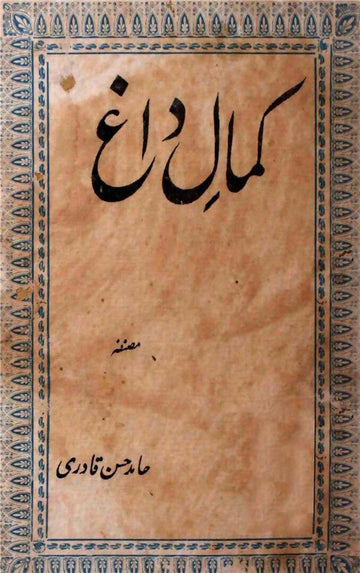 کمالِ داغ
مصنفہ
حامد حسن قادری